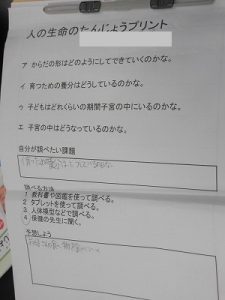 人の生命のたんじょうプリント
ア からだの形はどのようにしてできていくのかな。
イ 育つための養分はどうしているのかな。
ウ 子どもはどれくらいの期間子宮の中にいるのかな。
エ 子宮の中はどうなっているのかな。
自分が調べたい課題
調べる方法
1 教科書や図鑑を使って調べる。
2 タブレットを使って調べる。
3 人体模型などで調べる。
4 保健の先生に聞く。
予想しよう